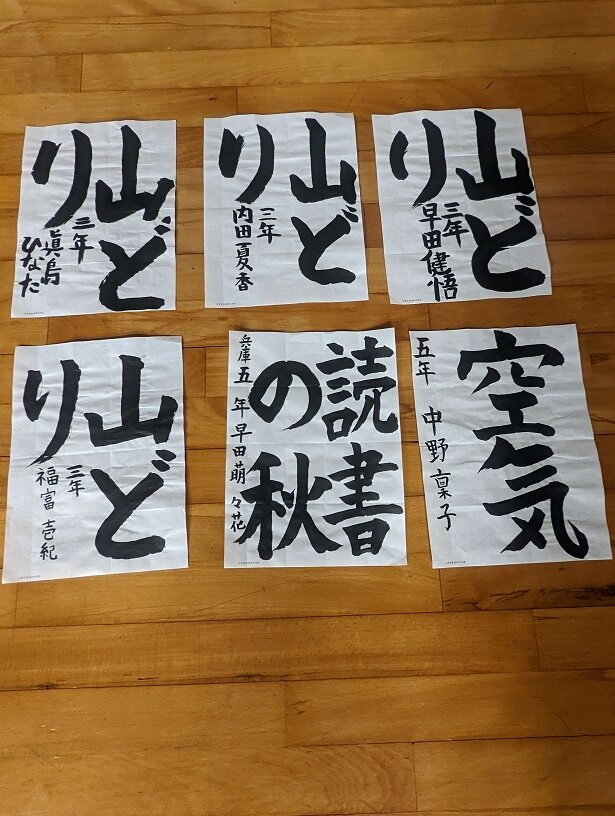 山ど
り
三年
眞島ひなた
山ど
り
三年
内田夏香
山ど
り
三年
早田健悟
山ど
り
三年
福富壱紀
読書
の秋
兵庫五年早田萌々花
空気
五年中野稟子